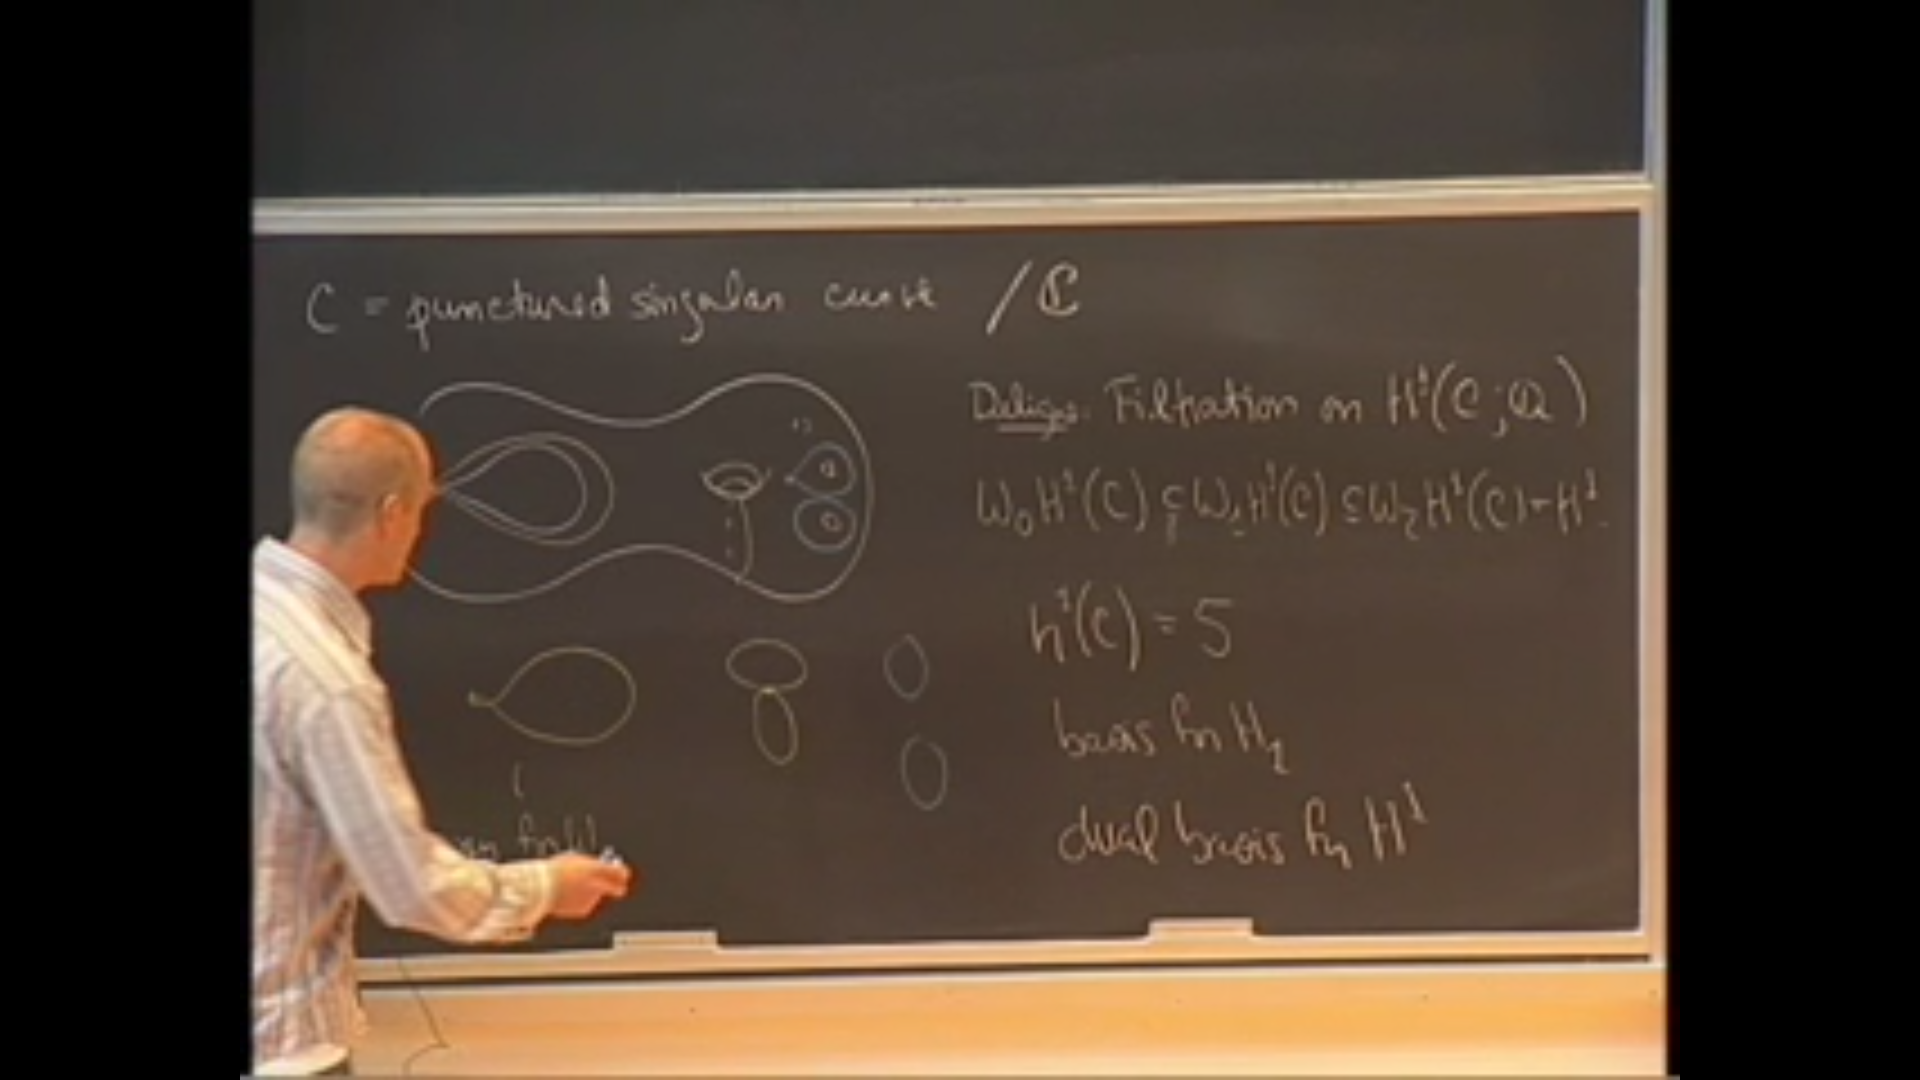 C = punctured singular curve / ℂ
Deligne: Filtration on H¹(C; ℚ)
W₀H¹(C) ⊆ W₁H¹(C) ⊆ W₂H¹(C) = H¹.
h¹(C) = 5
basis for H₁
dual basis for H¹
for W